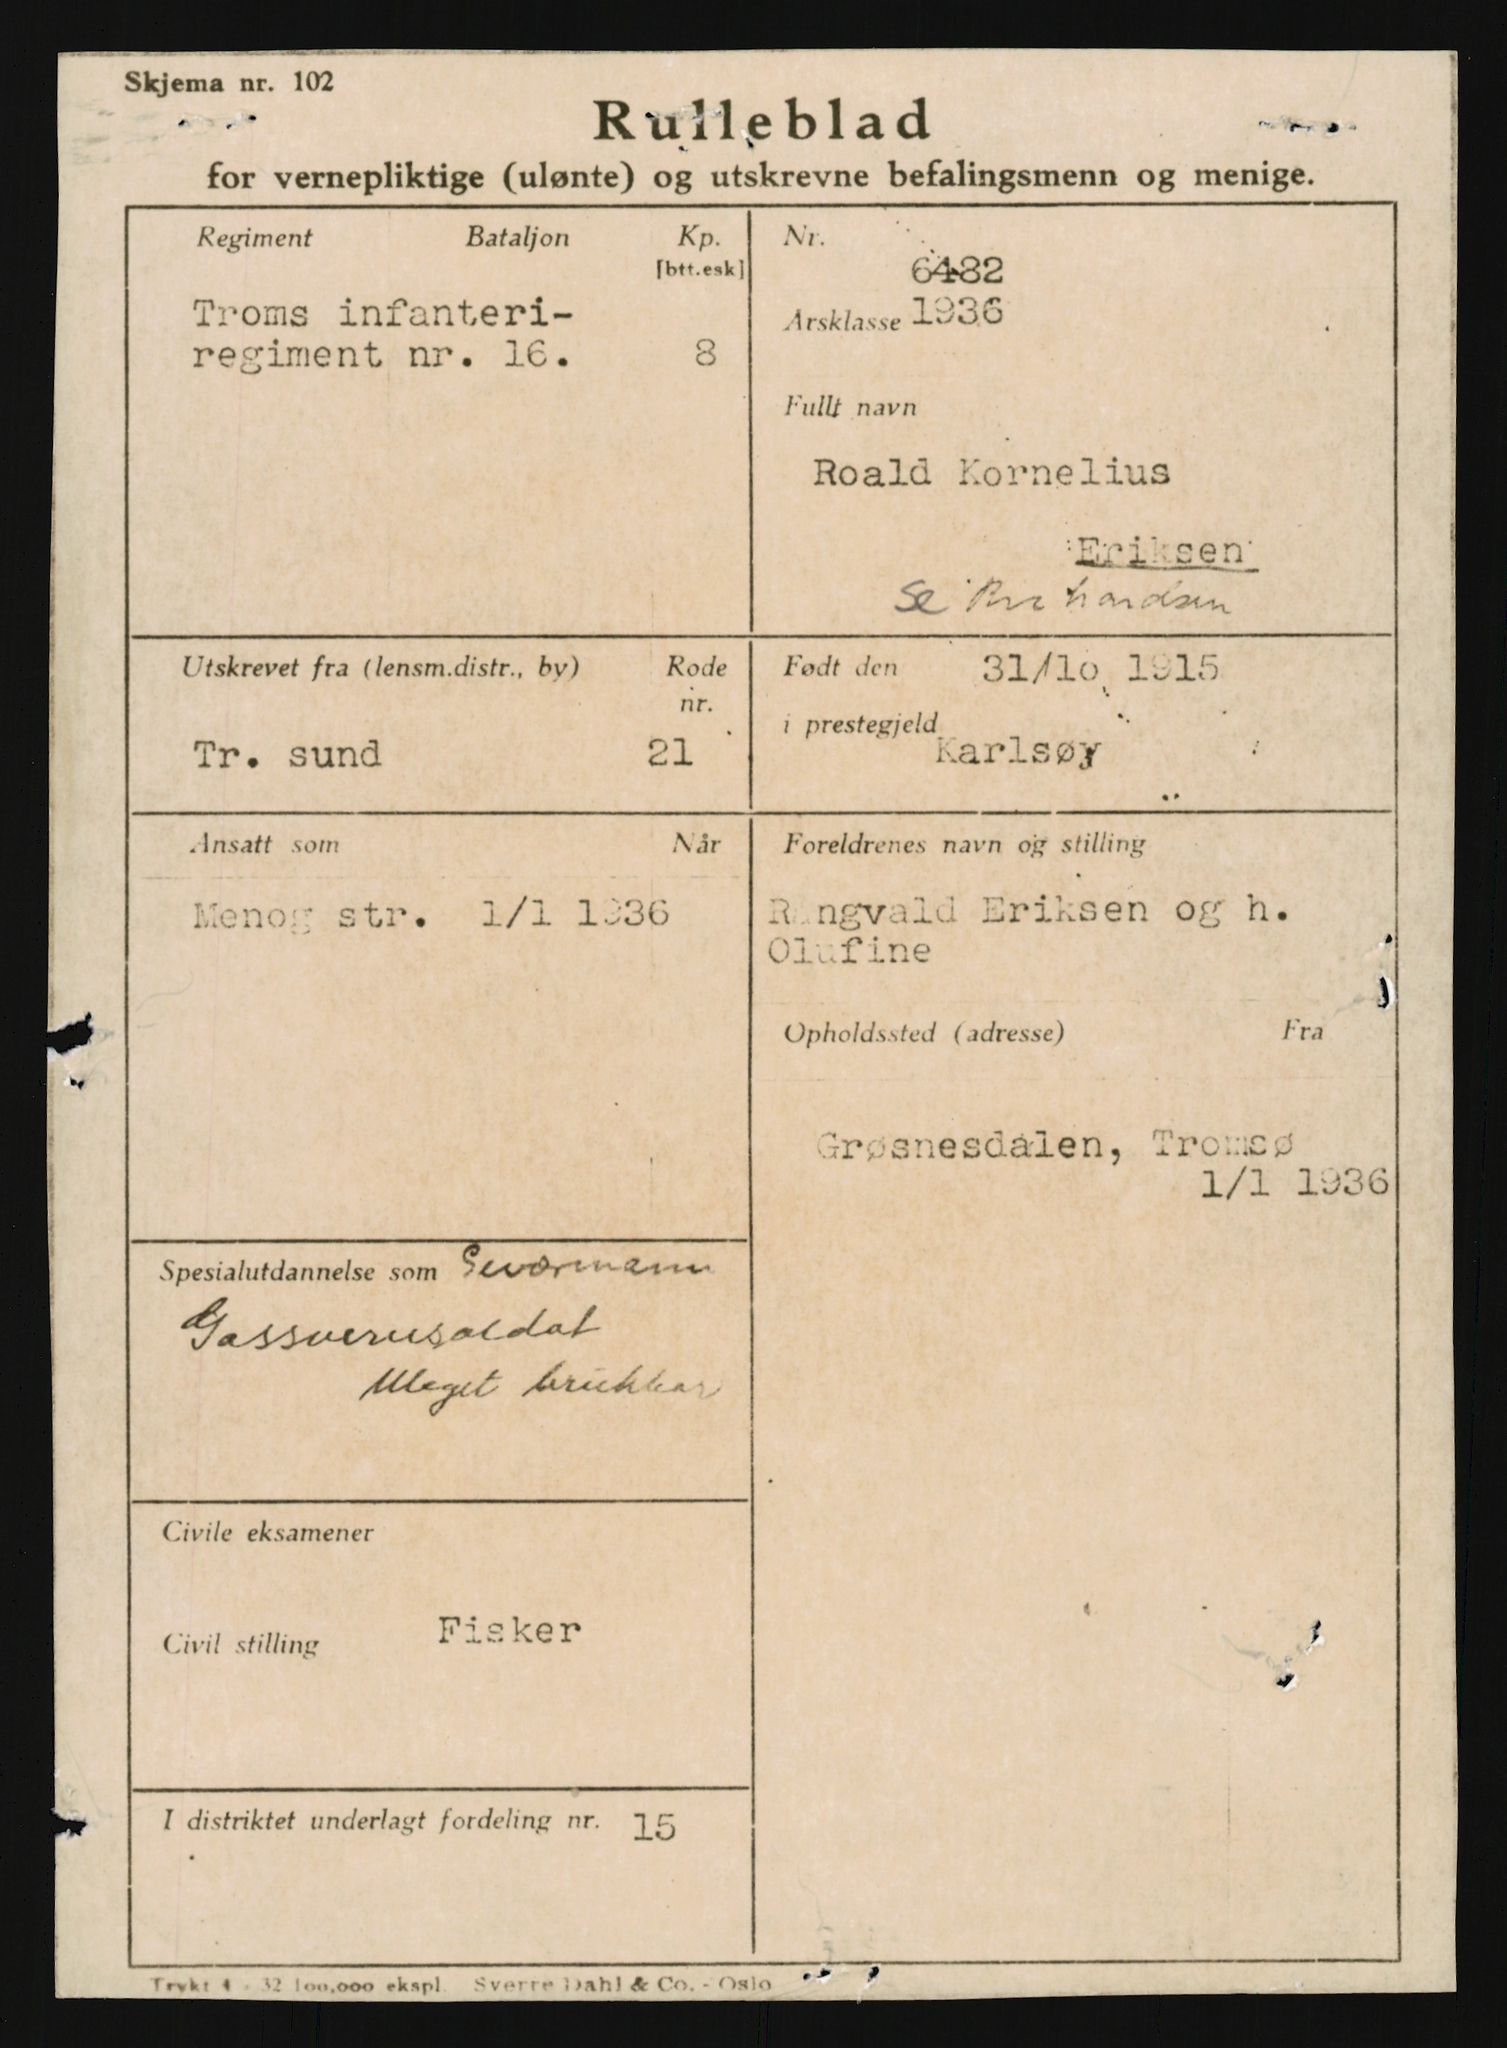 Skjema nr. 102
Rulleblad
for vernepliktige (ulønte) og utskrevne befalingsmenn og menige.
Regiment Bataljon Kp.
[btt.esk]
Troms infanteri-
regiment nr. 16. 8
Nr.
6482
Årsklasse 1936
Fullt navn
Roald Kornelius
Eriksen
Se Richardsen
Utskrevet fra (lensm.distr., by) Rode
nr.
Tr. sund 21
Født den 31/10 1915
i prestegjeld
Karlsøy
Ansatt som Når
Menog str. 1/1 1936
Foreldrenes navn og stilling
Rangvald Eriksen og h.
Olufine
Opholdssted (adresse) Fra
Grøsnesdalen, Tromsø
1/1 1936
Spesialutdannelse som Geværmann
Gassvernsoldat
Meget brukbar
Civile eksamener
Civil stilling Fisker
I distriktet underlagt fordeling nr. 15
Trykt 4 - 32 100,000 ekspl. Sverre Dahl & Co. - Oslo